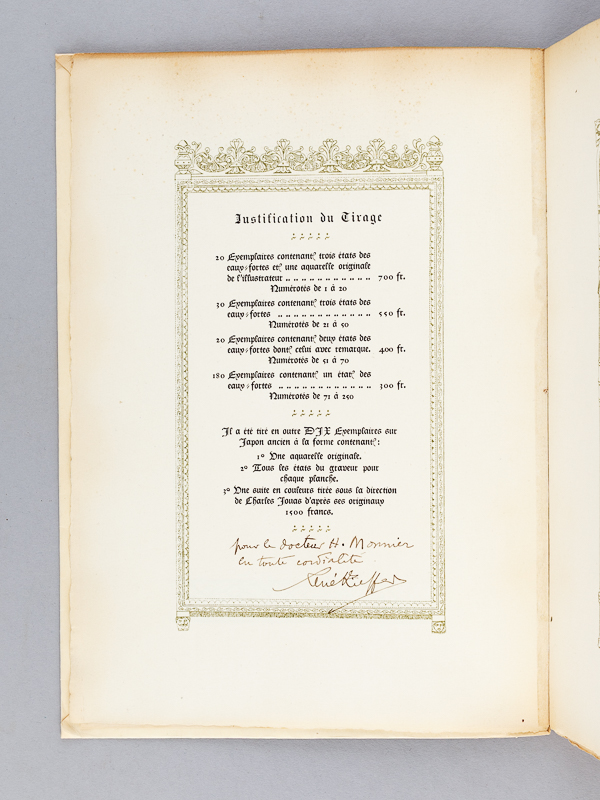 Justification du Tirage
20 Exemplaires contenant trois états des
eaux-fortes et une aquarelle originale
de l'illustrateur .. .. .. .. .. .. .. .. .. 700 fr.
Numérotés de 1 à 20
30 Exemplaires contenant trois états des
eaux-fortes .. .. .. .. .. .. .. .. .. .. 550 fr.
Numérotés de 21 à 50
20 Exemplaires contenant deux états des
eaux-fortes dont celui avec remarque. 400 fr.
Numérotés de 51 à 70
180 Exemplaires contenant un état des
eaux-fortes .. .. .. .. .. .. .. .. .. .. 300 fr.
Numérotés de 71 à 250
Il a été tiré en outre DIX Exemplaires sur
Japon ancien à la forme contenant :
1° Une aquarelle originale.
2° Tous les états du graveur pour
chaque planche.
3° Une suite en couleurs tirée sous la direction
de Charles Jouas d'après ses originaux
1500 francs.
pour le docteur H. Monnier
en toute cordialité
René Kieffer